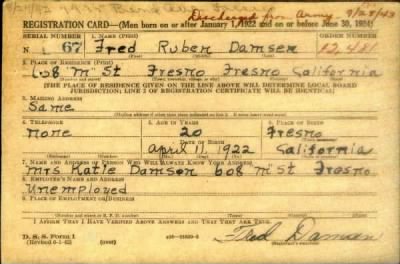 Discharged from Army
REGISTRATION CARD—(Men born on or after January 1, 1922 and on or before June 30, 1924)
9/28/43
SERIAL NUMBER
1. NAME (Print)
ORDER NUMBER
67
Fred Ruben Damsen
12,481
2. PLACE OF RESIDENCE (Print)
608 "M" St Fresno Fresno California
[THE PLACE OF RESIDENCE GIVEN ON THE LINE ABOVE WILL DETERMINE LOCAL BOARD
JURISDICTION; LINE 2 OF REGISTRATION CERTIFICATE WILL BE IDENTICAL]
3. MAILING ADDRESS
Same
4. TELEPHONE
5. AGE IN YEARS
6. PLACE OF BIRTH
None
20
Fresno
DATE OF BIRTH
April 11, 1922
California
7. NAME AND ADDRESS OF PERSON WHO WILL ALWAYS KNOW YOUR ADDRESS
Mrs Katie Damsen 608 "M" St Fresno
8. EMPLOYER'S NAME AND ADDRESS
Unemployed
9. PLACE OF EMPLOYMENT OR BUSINESS
I AFFIRM THAT I HAVE VERIFIED ABOVE ANSWERS AND THAT THEY ARE TRUE.
D. S. S. Form 1
Fred Damsen